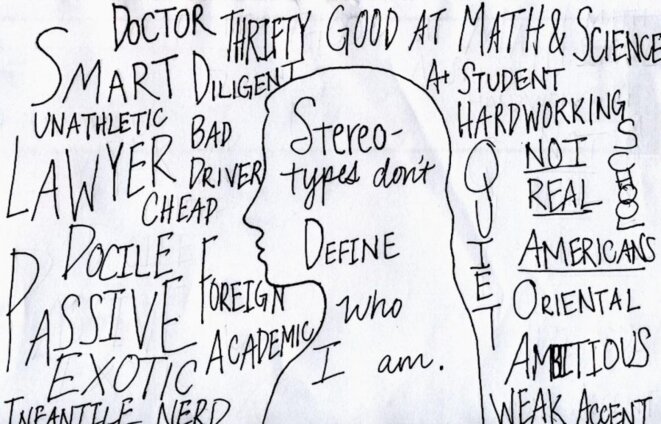 DOCTOR
THRIFTY
GOOD AT MATH & SCIENCE
SMART
DILIGENT
A+ STUDENT
UNATHLETIC
BAD
DRIVER
HARDWORKING
LAWYER
CHEAP
Stereo-
types don't
DEFINE
who
I am.
QUIET
NOT
REAL
AMERICANS
DOCILE
FOREIGN
PASSIVE
ORIENTAL
ACADEMIC
AMBITIOUS
EXOTIC
INFANTILE
NERD
WEAK
ACCENT